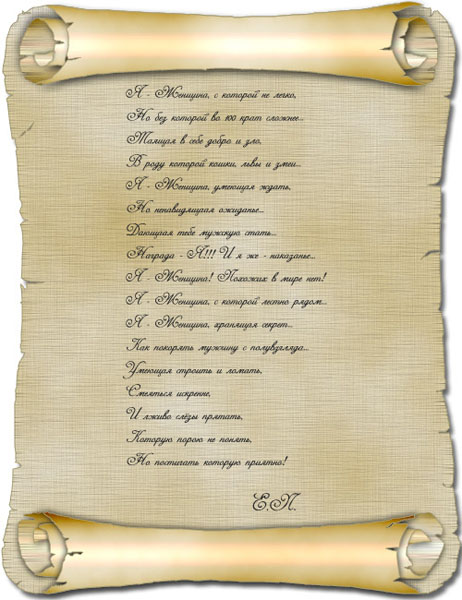 Я - Женщина, с которой не легко,
Но без которой во 100 крат сложнее...
Таящая в себе добро и зло,
В роду которой кошки, львы и змеи...
Я - Женщина, умеющая ждать,
Но ненавидящая ожиданье...
Дающая тебе мужскую стать...
Награда - Я!!! И я же - наказанье...
Я - Женщина! Похожих в мире нет!
Я - Женщина, с которой лестно рядом...
Я - Женщина, хранящая секрет...
Как покорять мужчину с полувзгляда...
Умеющая строить и ломать,
Смеяться искренне,
И лживо слёзы прятать,
Которую порою не понять,
Но постигать которую приятно!
Е.П.